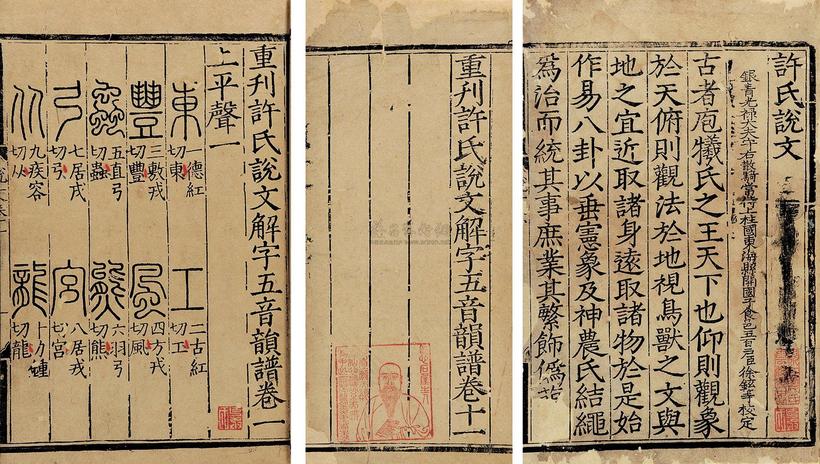 許氏說文
銀青光祿大夫守右散騎常侍上柱國東海縣開國子食邑五百戶臣徐鉉等校定
古者庖犧氏之王天下也仰則觀象
於天俯則觀法於地視鳥獸之文與
地之宜近取諸身遠取諸物於是始
作易八卦以垂憲象及神農氏結繩
爲治而統其事庶業其繁飾僞
重刊許氏說文解字五音韻譜卷十一
重刊許氏說文解字五音韻譜卷一
上平聲一
東 一德紅切東 工 二古紅切工
豐 三敷戎切豐 風 四方戎切風
蟲 五直弓切蟲 熊 六羽弓切熊
弓 七居戎切弓 宮 八居戎切宮
从 九疾容切从 龍 十力鍾切龍